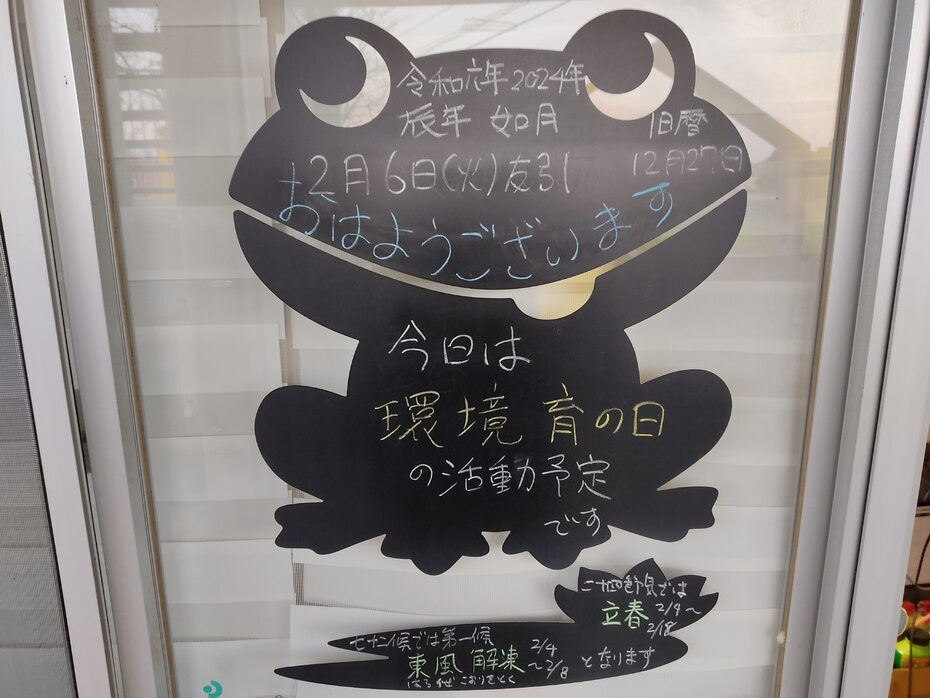 令和六年2024年
辰年 如月
旧暦
12月27日
2月6日(火)友引
おはようございます
今日は
環境育の日
の活動予定
です
二十四節気では
立春 2/4～
2/18
七十二候では第一候
東風解凍 2/4
～2/8 となります
はるかぜ こおりをとく